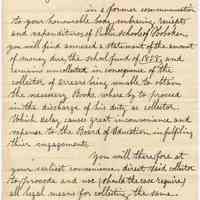 In a former communication
to your honourable body embracing receipts
and expenditures of Public schools of Hoboken,
you will find annexed a statement of the amount
of money due, the school fund of 1855, and
remains uncollected in consequence of the
collector of arrears being unable to obtain
the necessary Books, where by to proceed
in the discharge of his duty as collector
Which delay causes great inconvenience, and
expense to the Board of Education in fulfilling
their engagements.
You will therefore at
your earliest convenience, direct said collector
to proceede and use (should the case require)
all legal means for collecting the same.